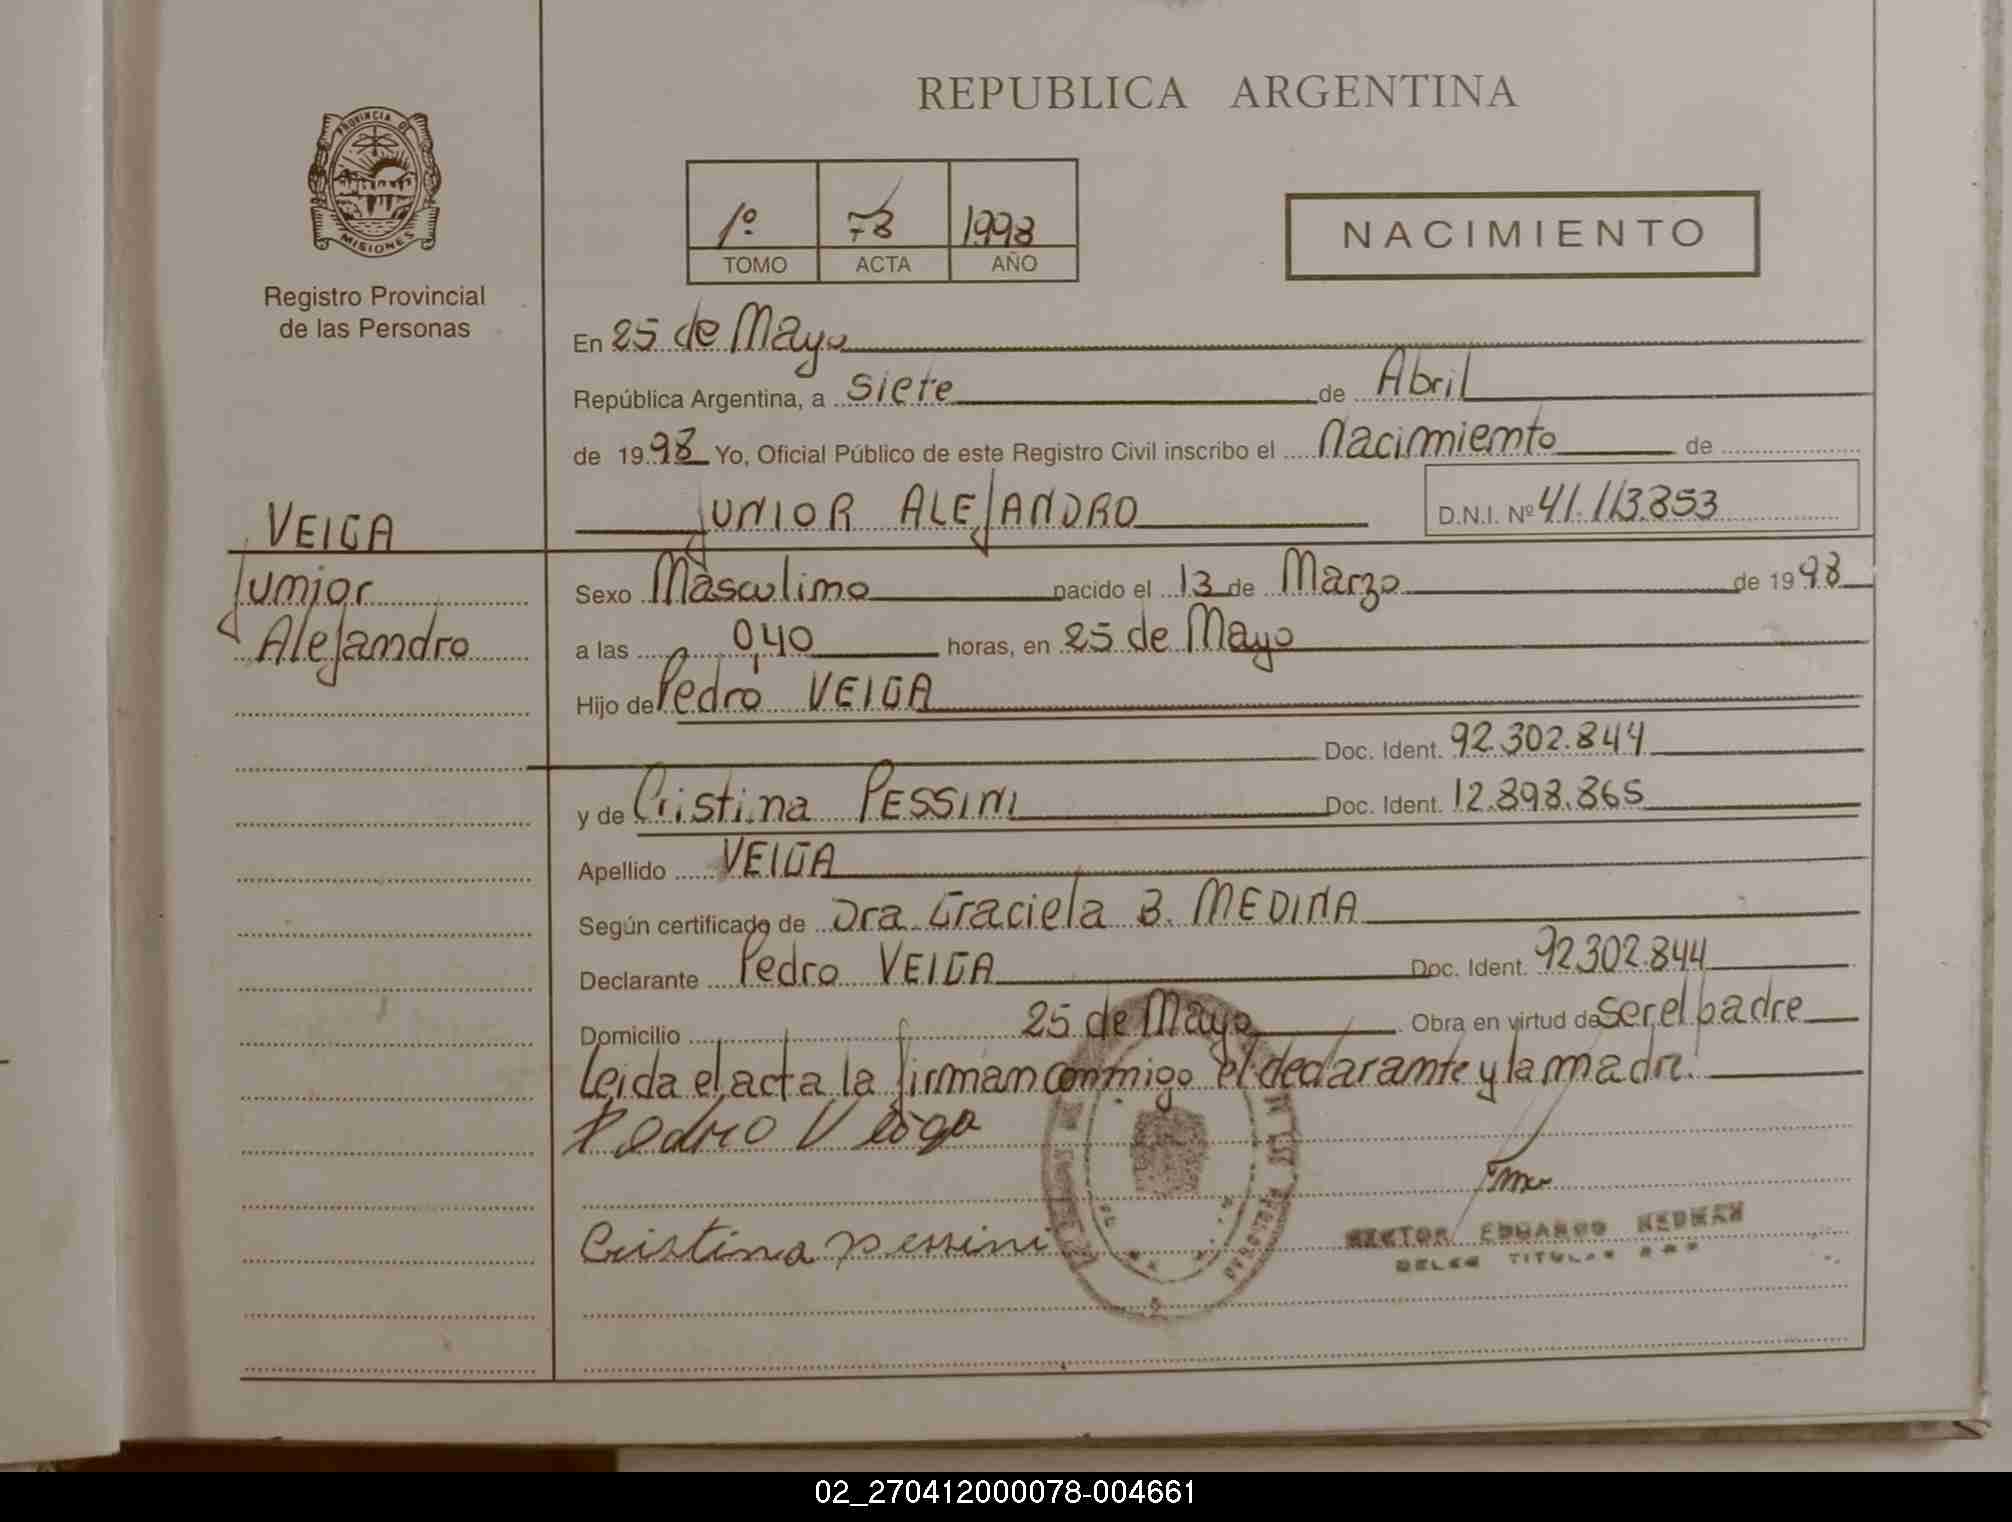 REPUBLICA ARGENTINA
PROVINCIA DE
MISIONES
Registro Provincial
de las Personas
1º 78 1998
TOMO ACTA AÑO
NACIMIENTO
En 25 de Mayo
República Argentina, a siete de Abril
de 1998 Yo, Oficial Público de este Registro Civil inscribo el Nacimiento de
VEIGA
JUNIOR ALEJANDRO D.N.I. Nº 41.113.853
Junior
Alejandro
Sexo Masculino nacido el 13 de Marzo de 1998
a las 0,40 horas, en 25 de Mayo
Hijo de Pedro VEIGA
Doc. Ident. 92.302.844
y de Cristina PESSINI Doc. Ident. 12.898.865
Apellido VEIGA
Según certificado de Dra Graciela B. MEDINA
Declarante Pedro VEIGA Doc. Ident. 92302.844
Domicilio 25 de Mayo Obra en virtud de ser el padre
Leida el acta la firman conmigo el declarante y la madre.
Pedro Veiga
Cristina Pessini
HECTOR EDUARDO NEUMAN
DELEG TITULAR
02_270412000078-004661